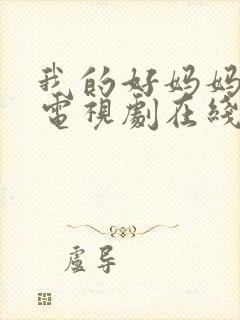 我的好妈妈
電視劇在綫
盧导